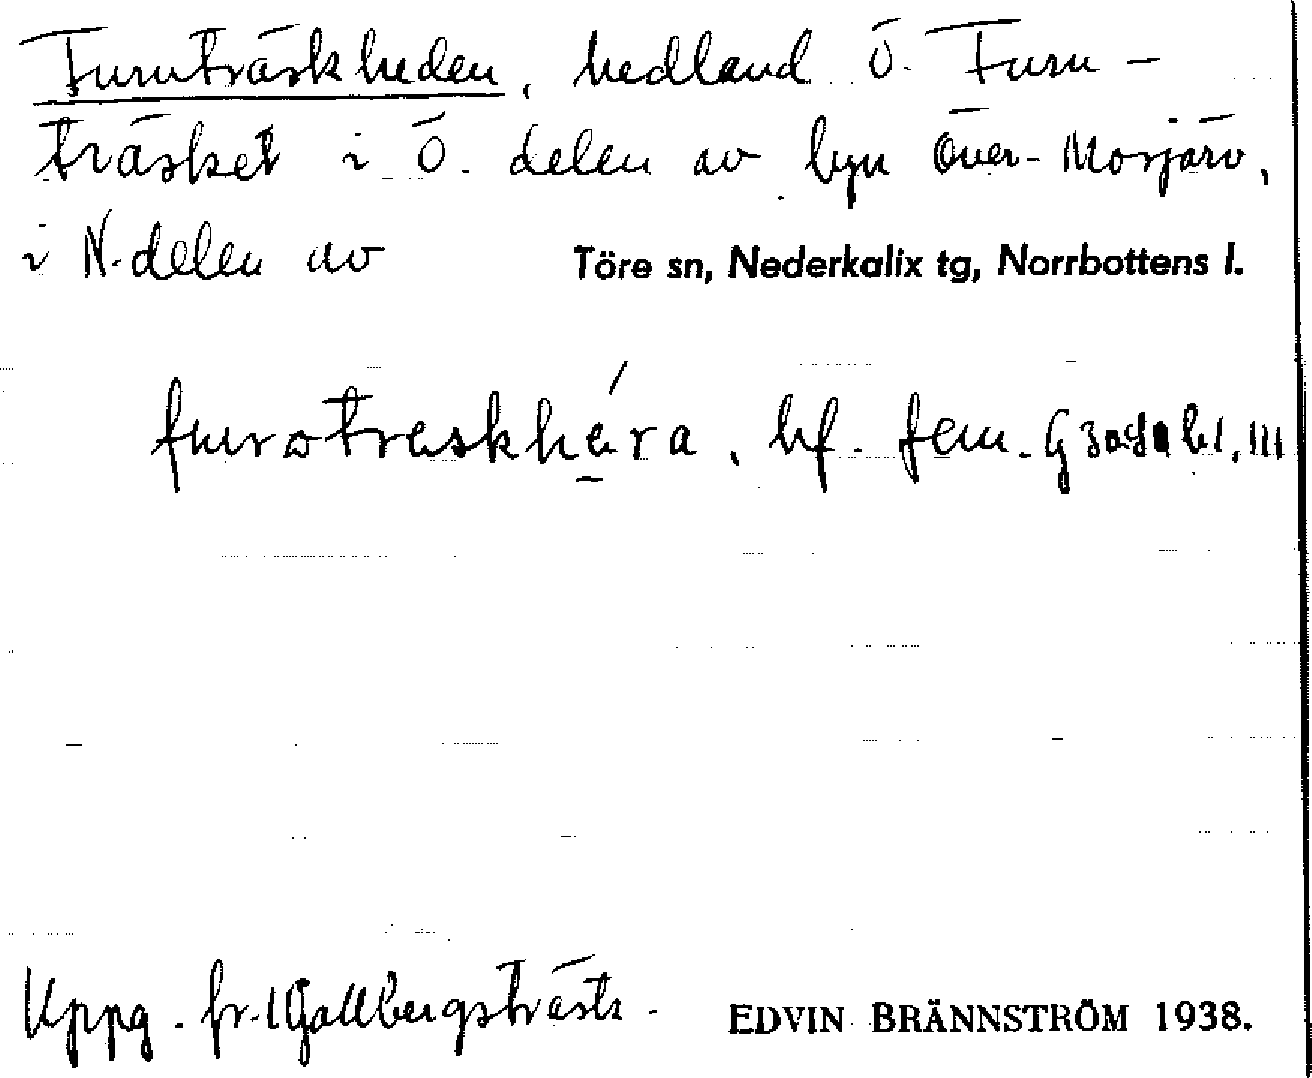 Furuträskheden, hedland Ö. Furu-
träsket i Ö. delen av byn Över-Morjärv,
i N. delen av Töre sn, Nederkalix tg, Norrbottens l.
furotreskhéra, bf. fem. G
Uppg. fr. EDVIN BRÄNNSTRÖM 1938.